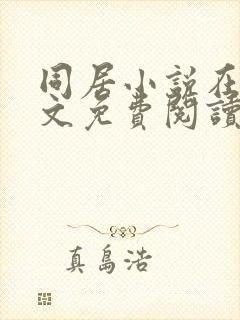 同居小说在
文免費閱讀
真島浩